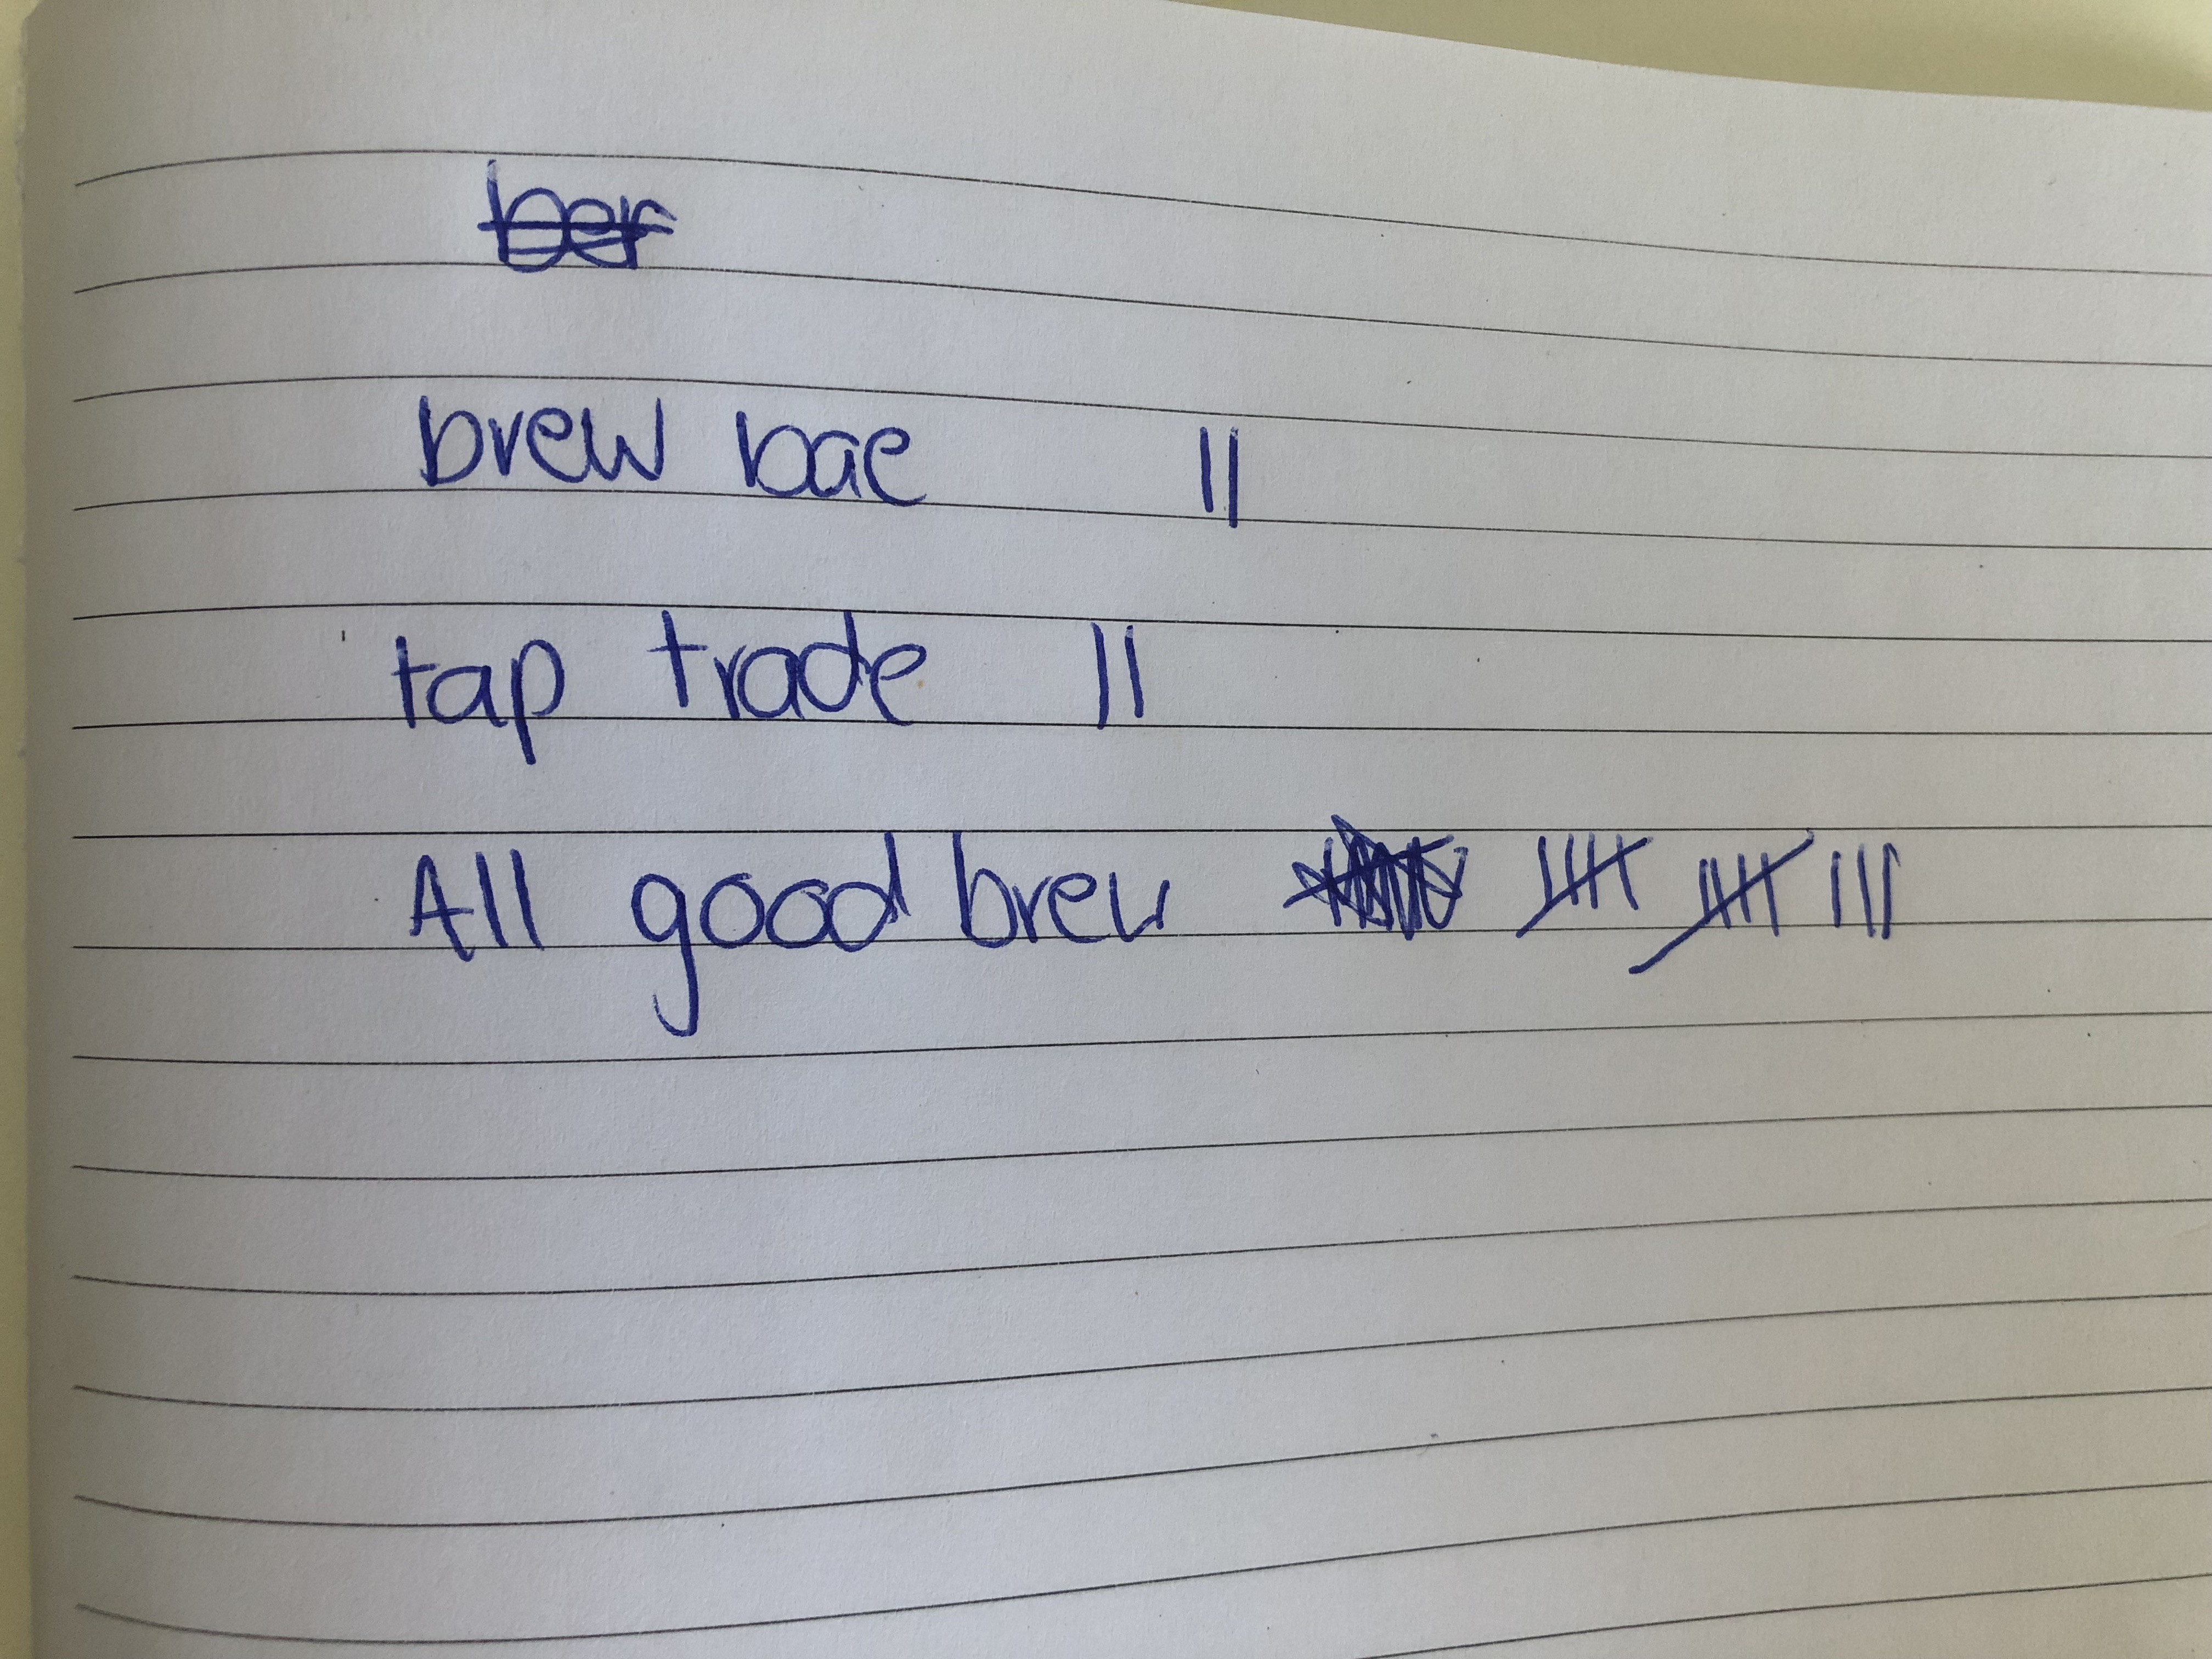 ber
brew bae ||
tap trade ||
All good brew |||| |||| |||